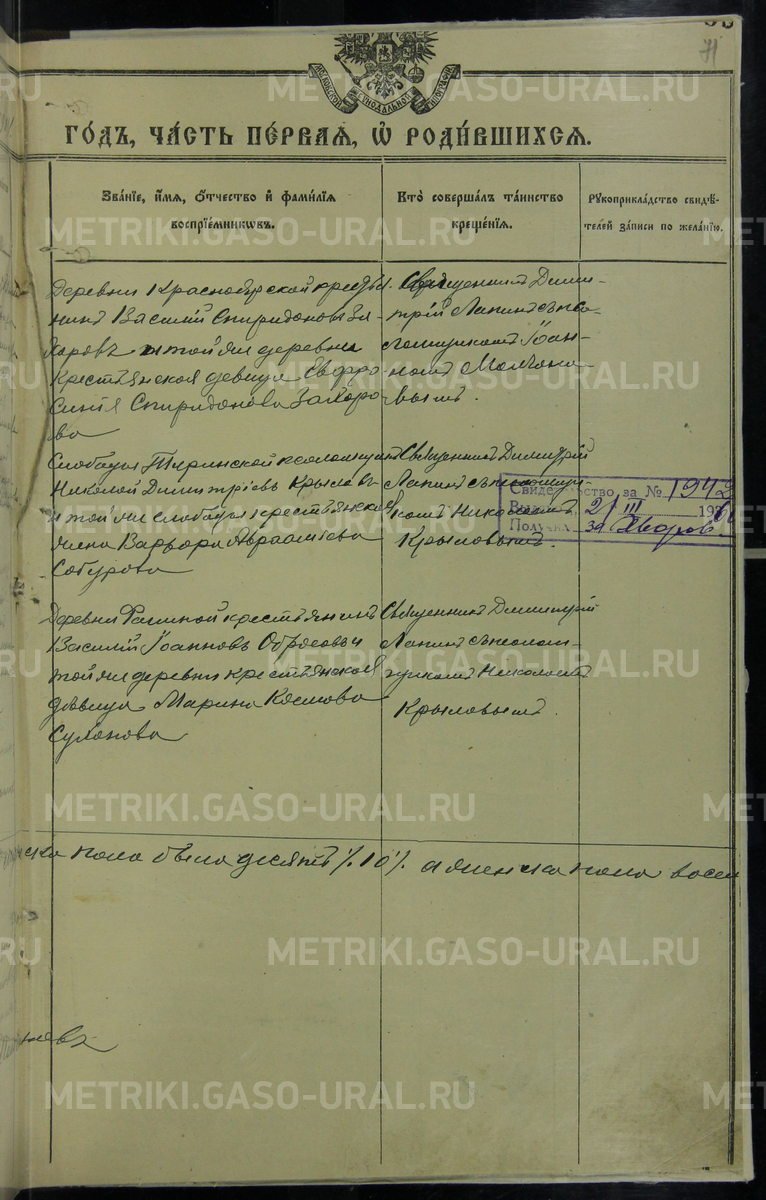 71
МОСКОВСКОЙ СѴНОДАЛЬНОЙ ТИПОГРАФІИ
ГО́ДЪ, ЧА́СТЬ ПЕ́РВАѦ, Ѡ҆ РОДИ́ВШИХСѦ.
Зва́нїе, и҆́мѧ, ѻ҆́тчество и҆ фами́лїѧ
воспрїе́мникѡвъ.
Кто̀ соверша́лъ та́инство
креще́нїѧ.
Рꙋкоприкла́дство свидѣ́-
телей за́писи по жела́нїю.
Деревни Красноярской крестья
нинъ Василій Спиридоновъ За-
харовъ и той же деревни
Крестьянская девица Евфро-
синія Спиридонова Захаро-
ва
Священникъ Дими-
трій Лапинъ съ пса-
ломщикомъ Іоан-
номъ
вымъ.
Слободы Туринской псаломщикъ
Николай Димитріевъ Крыловъ
и той же слободы крестьянская
жена Варвара Аврааміева
Сабурова
Священникъ Димитрій
Лапинъ съ псаломщи-
комъ Николаемъ
Крыловымъ.
Свидетельство за № 1942
21 III
Получил
Деревни крестьянинъ
Василій Іоанновъ
той же деревни крестьянская
дѣвица Марина Космова
Суланова
Священникъ Димитрій
Лапинъ съ псалом-
щикомъ Николаемъ
Крыловымъ.
ска пола было десять /.10/. а женска пола восем
новъ
METRIKI.GASO-URAL.RU